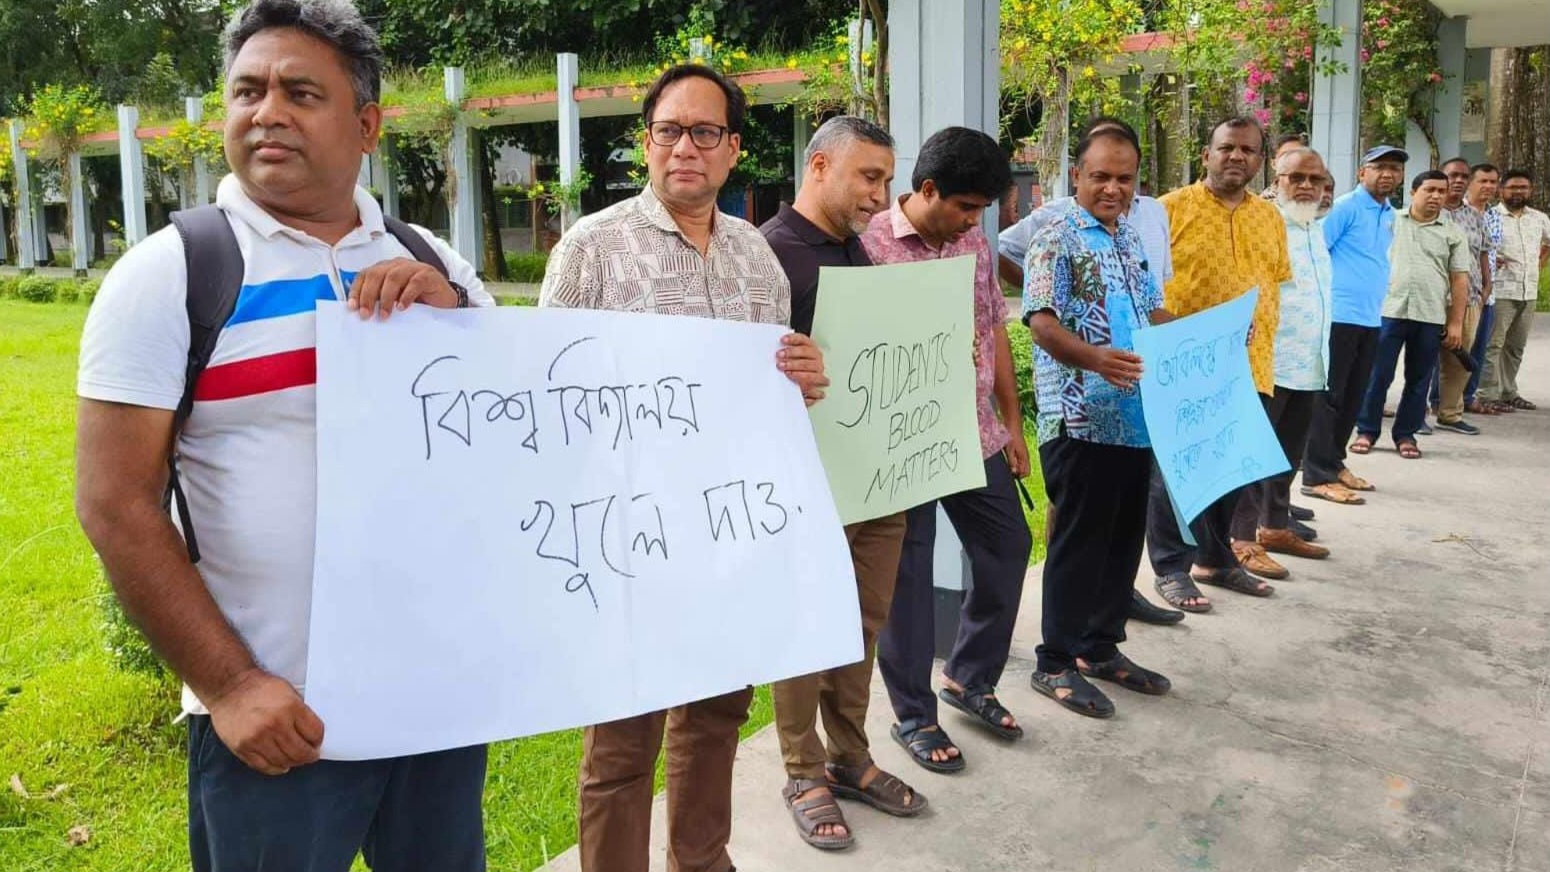 বিশ্ব বিদ্যালয়
খুলে দাও.
STUDENTS'
BLOOD
MATTERS
অবিলম্বে
খুলতে হবে